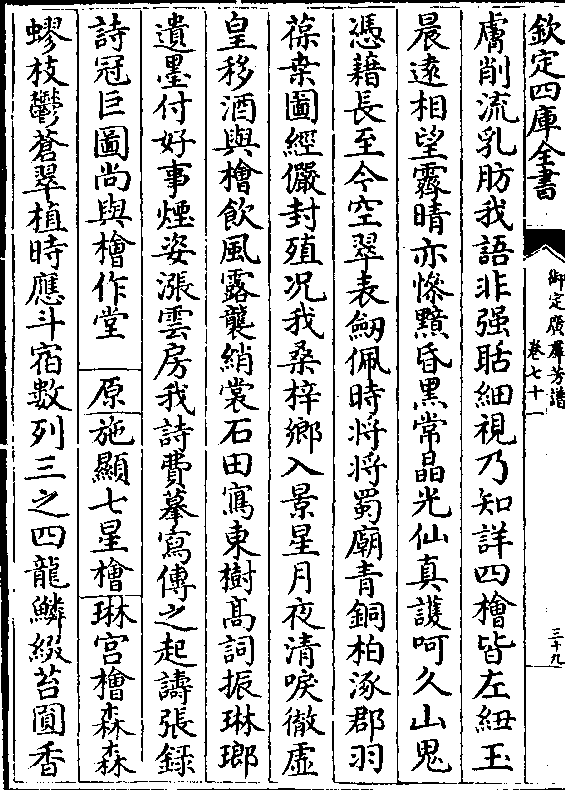 欽定四庫全書
御定廣羣芳譜
卷七十
三十九
膚削流乳肪我語非强聒細視乃知詳四檜皆左紐玉
晨遠相望霽晴亦慘黷昏黑常晶光仙真護呵久山鬼
憑藉長至今空翠表劒佩時將將蜀廟青銅柏涿郡羽
葆桒圖經儼封殖况我桑梓鄉入景星月夜清唳徹虛
皇移酒與檜飲風露襲綃裳石田寫東樹髙詞振琳瑯
遺墨付好事煙姿漲雲房我詩費摹寫傳之起譸張録
詩冠巨圖尚與檜作堂　原施顯七星檜琳宫檜森森
蟉枝鬱蒼翠植時應斗宿數列三之四龍鱗綴苔圓香